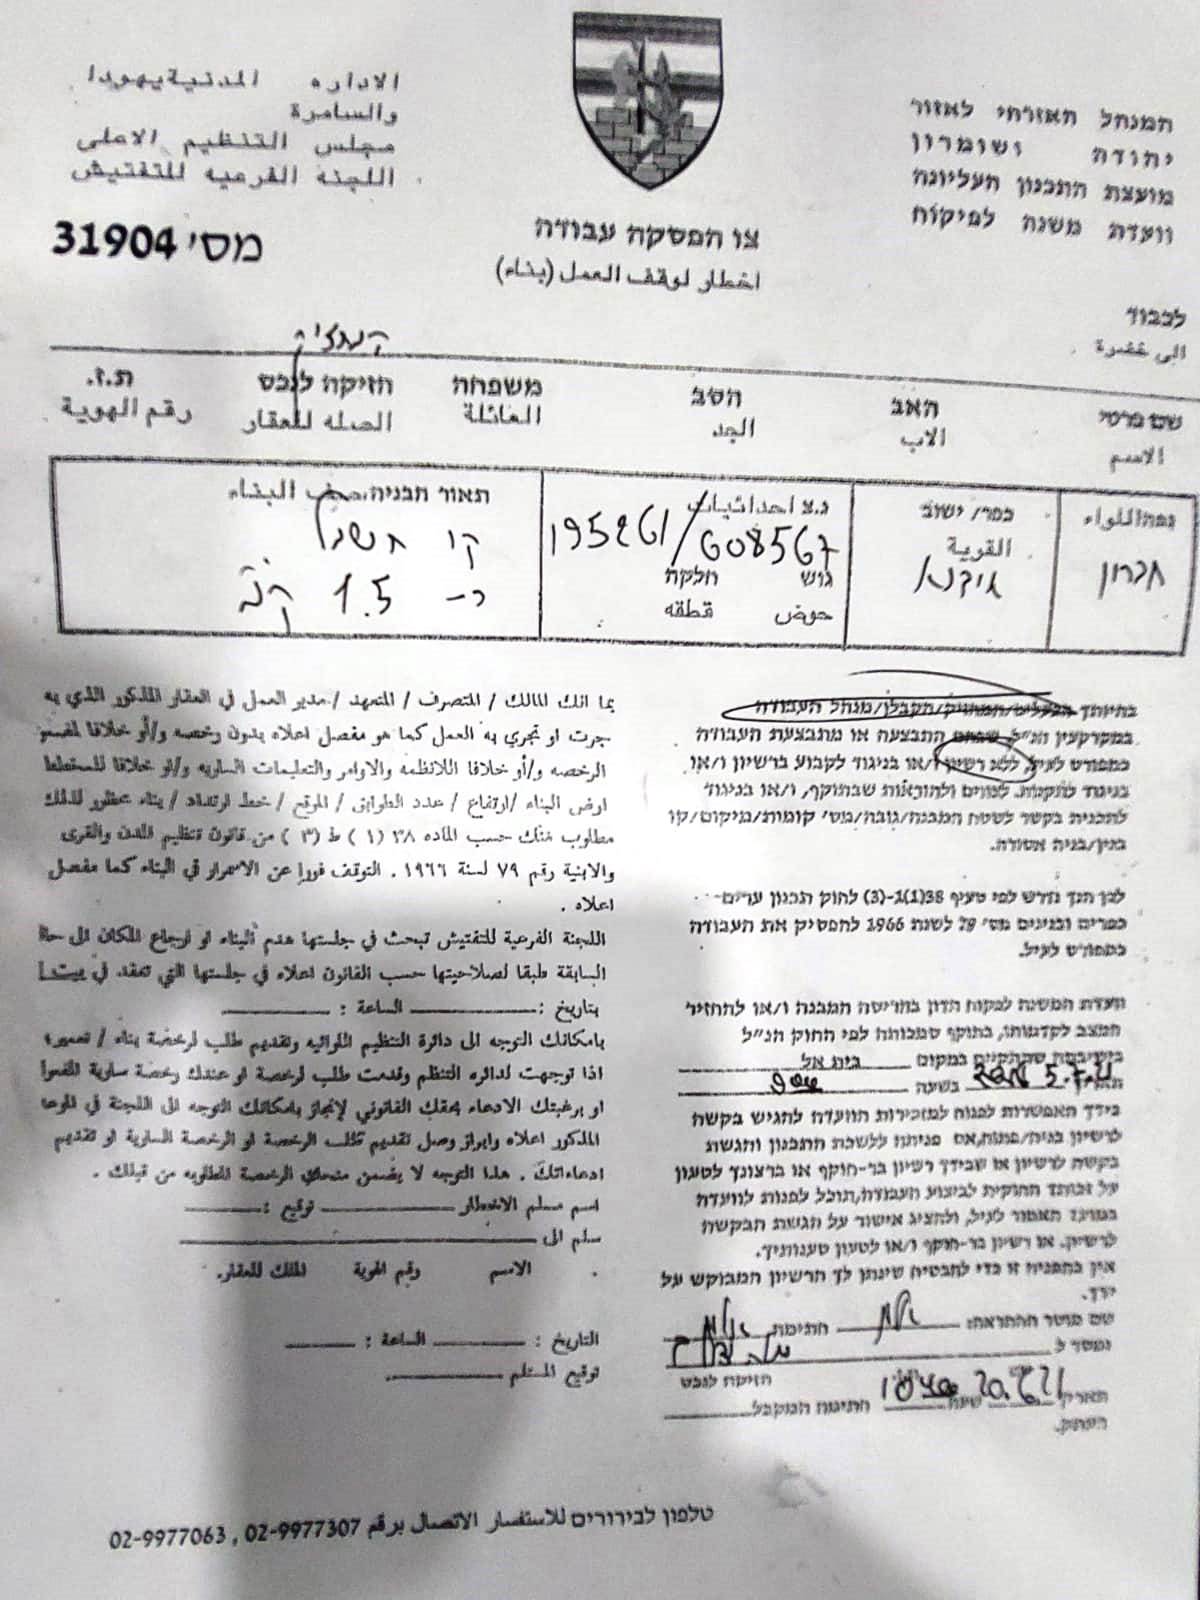 המנהל האזרחי לאזור
יהודה ושומרון
מועצת התכנון העליונה
וועדת משנה לפיקוח
الاداره المدنية يهودا
والسامرة
مجلس التنظيم الاعلى
اللجنه الفرعيه للتفتيش
צו הפסקה עבודה
اخطار لوقف العمل (بناء)
מסי 31904
לכבוד
الى حضرة
שם פרטי האב הסב משפחה חזיקה לנכס ת.ז.
الاسم الاب الجد العائلة الصله للعقار رقم الهوية
נפה اللواء
חברון
כפר/ ישוב
القرية
אידנא
נ.צ احداثيات
195261/608567
גוש חלקה
حوض قطقه
תאור הבניה وصف البناء
קו חשמל
כ- 1.5 ק"מ
בהיותך הבעלים/המחזיק/הקבלן/מנהל העבודה
במקרקעין הנ"ל שבהם התבצעה או מתבצעת העבודה
כמפורט לעיל, ללא רשיון ו/או בניגוד לקבוע ברשיון ו/או
בניגוד לתקנות, לצווים ולהוראות שבתוקף, ו/או בניגוד
לתכנית בקשר לשטח המבנה/גובה/מס' קומות/מיקום/קו
בנין/בניה אסורה.
לכן הנך נדרש לפי סעיף 38(1)ג-(3) לחוק תכנון ערים
כפרים ובנינים מס' 79 לשנת 1966 להפסיק את העבודה
כמפורט לעיל.
וועדת המשנה לפקוח תדון בהריסה המבנה ו/או להחזיר
המצב לקדמותו, בתוקף סמכותה לפי החוק הנ"ל
בישיבתה שתתקיים במקום בית אל
תאריך 5.7.21 בשעה 900
בידך האפשרות לפנות למזכירות הוועדה להגיש בקשה
לרשיון בניה/פתוח, אם פניתה ללשכת התכנון והגשת
בקשה לרשיון או שבידך רשיון בר-תוקף או ברצונך לטעון
על זכותך החוקית לביצוע העבודה, תוכל לפנות לוועדה
במועד האמור לעיל, ולהציג אישור על הגשת הבקשה
לרשיון, או רשיון בר-תוקף ו/או לטעון טענותיך.
אין בהפניה זו כדי להבטיח שינתן לך הרשיון המבוקש על
ידך.
שם מוסר ההתראה: חתימת
נמסר ל
חזיקה לנכס
תאריך 20.6.21 שעה 1050 חתימת המקבל
העתק.
بما انك المالك / المتصرف / المتعهد / مدير العمل في العقار المذكور الذي به
جرت او تجري به العمل كما هو مفصل اعلاه بدون رخصه و/أو خلافا لمفسر
الرخصه و/أو خلافا للانظمه والاوامر والتعليمات الساريه و/او خلافا للمخطط
ارض البناء /ارتفاع / عدد الطوابق / الموقع / خط ارتداد / بناء محظور لذلك
مطلوب منك حسب الماده ٣٨ (١) ط (٣) من قانون تنظيم المدن والقرى
والابنية رقم ٧٩ لسنة ١٩٦٦ . التوقف فورا عن الاسمرار في البناء كما مفصل
اعلاه .
اللجنة الفرعية للتفتيش تبحث في جلستها هدم البناء او ارجاع المكان الى حالـ
السابقة طبقا لصلاحيتها حسب القانون اعلاه في جلستها التي تعقد في بيت ا
بتاريخ : الساعة :
بامكانك التوجه الى دائرة التنظيم اللوائيه وتقديم طلب لرخصة بناء / تعمير،
اذا توجهت لدائره التنظم وقدمت طلب لرخصة او عندك رخصة سارية المفعوا
او برغبتك الادعاء بحقك القانوني لإنجاز بامكانك التوجه الى اللجنة في الموعا
المذكور اعلاه وابراز وصل تقديم طلب الرخصة او الرخصة السارية او تقديم
ادعاءاتك . هذا التوجه لا يضمن منحك الرخصة المطلوبه من قبلك .
اسم مسلم الاخطار توقيع :
سلم الى
الاسم رقم الهوية المالك للعقار.
التاريخ : الساعة :
توقيع المستلم
טלפון לבירורים للاستفسار الاتصال برقم 02-9977307 , 02-9977063